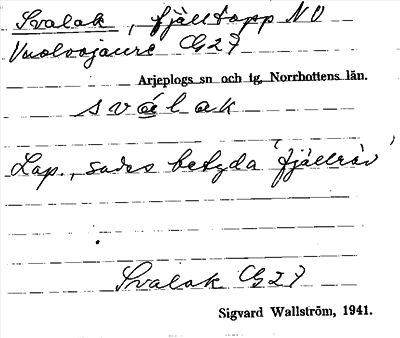 Svalak, fjälltopp NO
Vuolvojaure G27
Arjeplogs sn och tg, Norrbottens län.
sválak
Lap., sades betyda 'fjällräv'
Svalak G27
Sigvard Wallström, 1941.